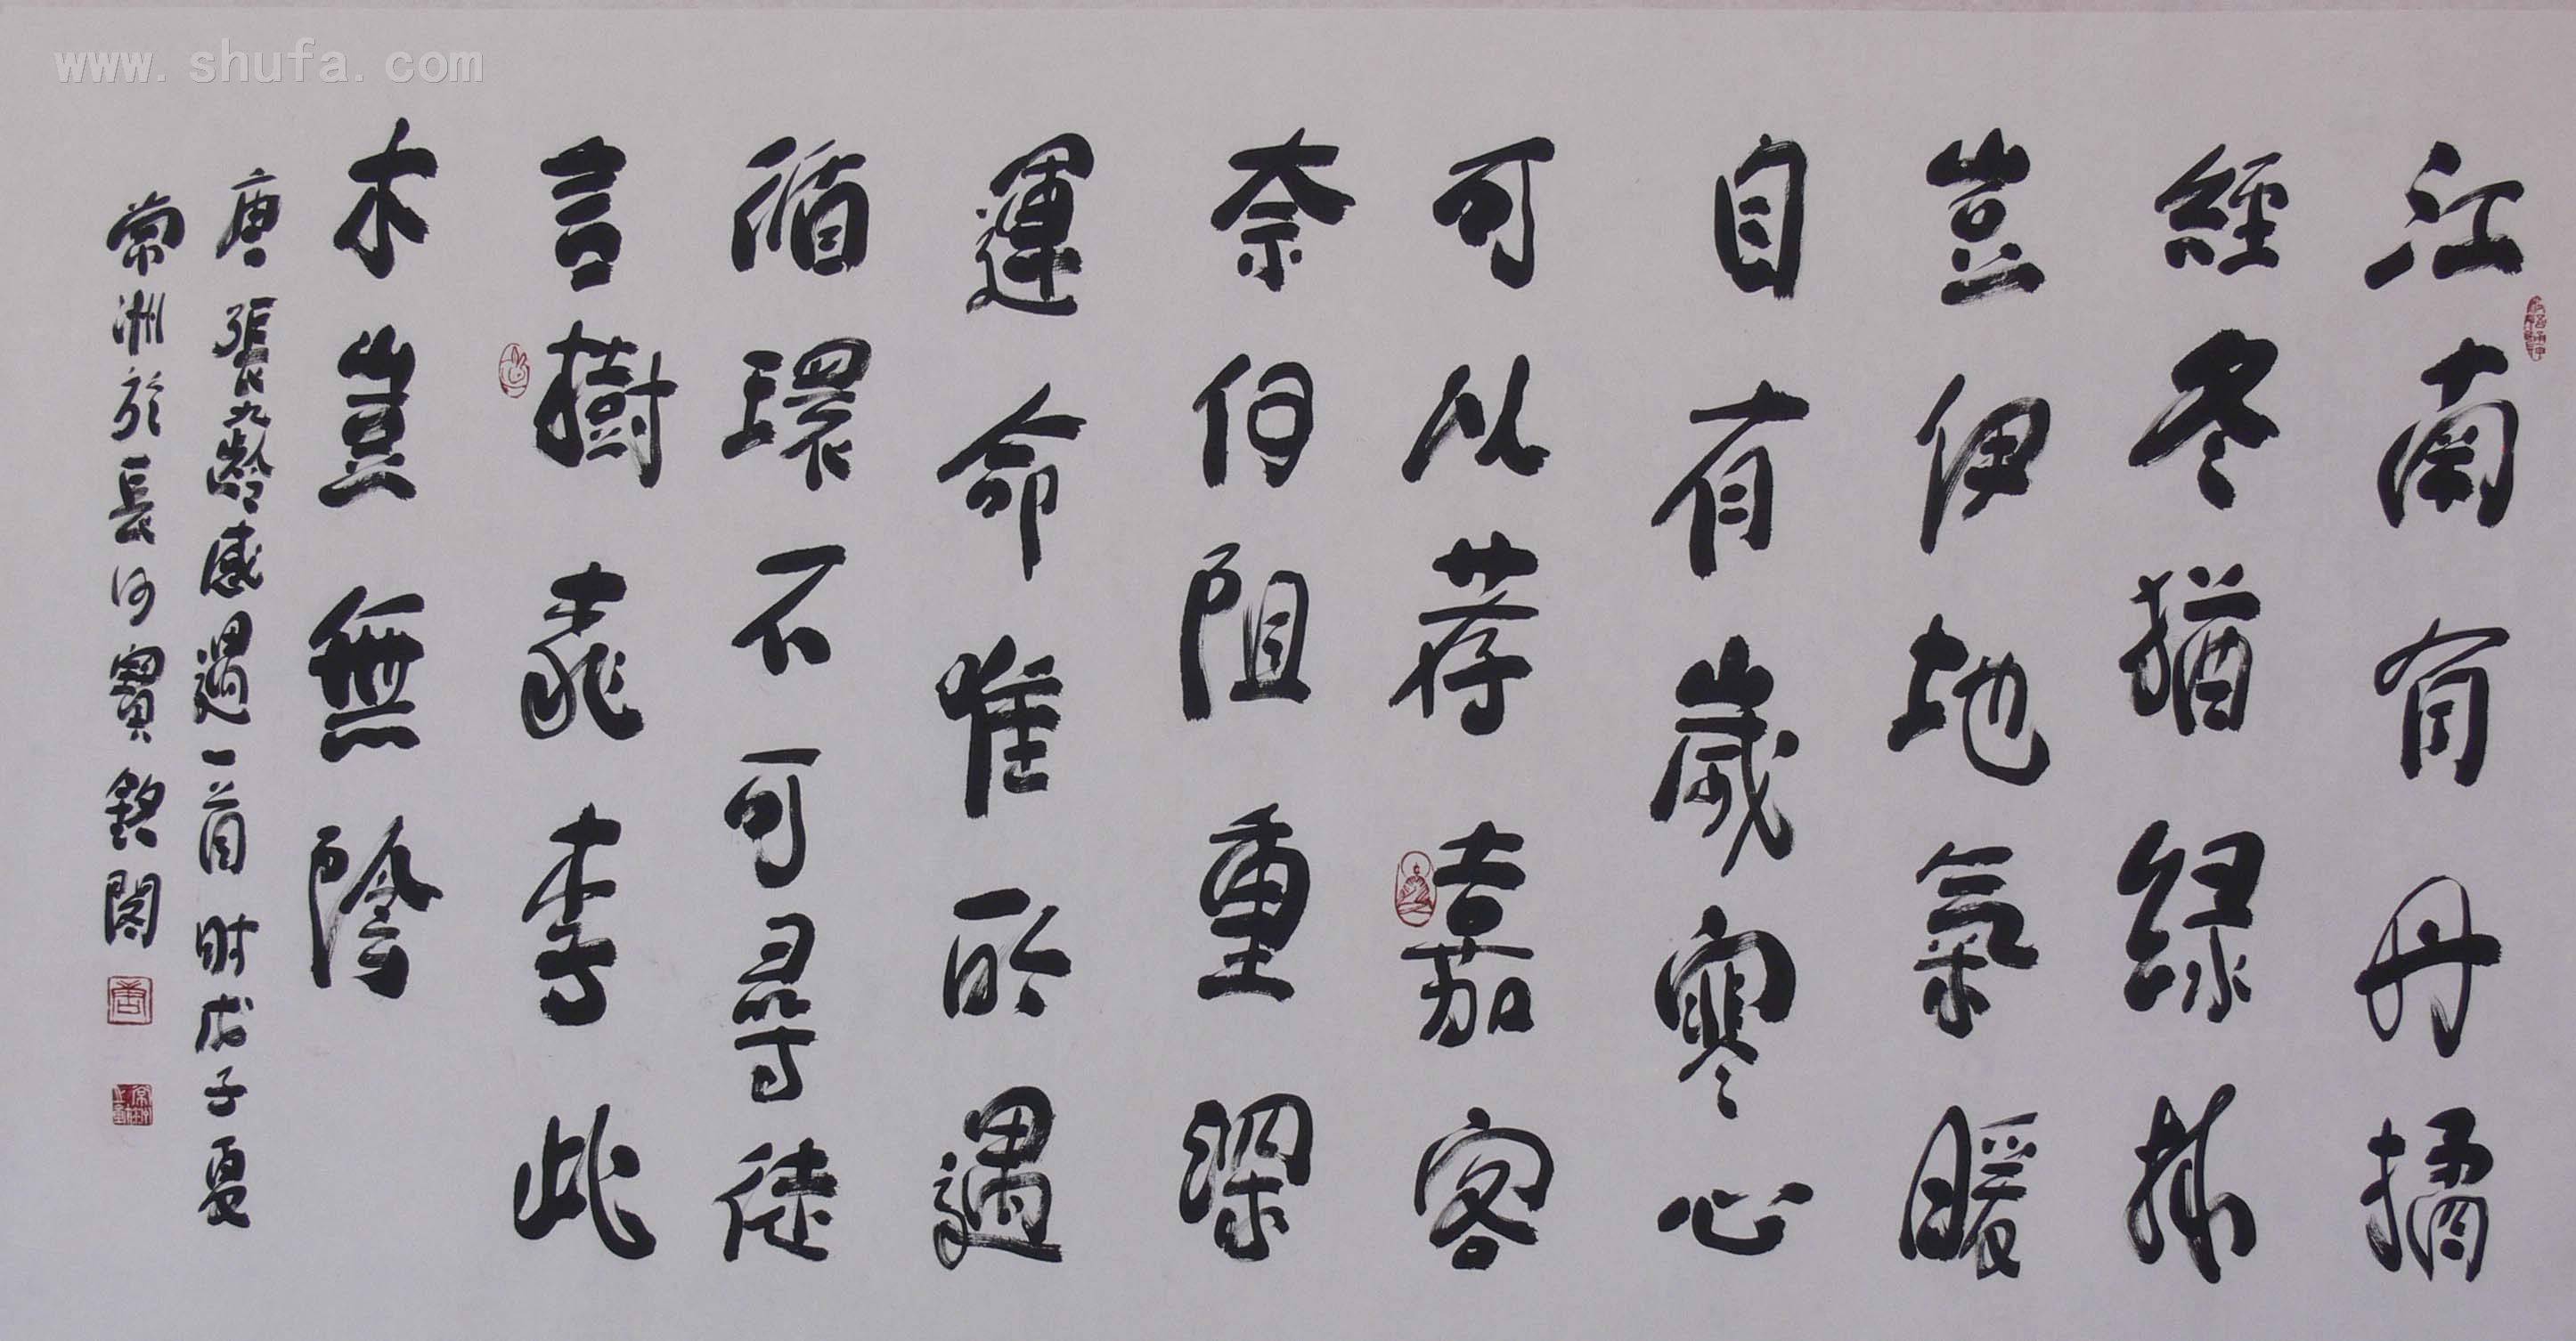 www.shufa.com
江南有丹橘
經冬猶綠林
豈伊地氣暖
自有歲寒心
可以荐嘉客
奈何阻重深
運命唯所遇
循環不可尋徒
言樹桃李此
木豈無陰
唐張九齡感遇一首時戊子夏
常洲於長河寶銘閣